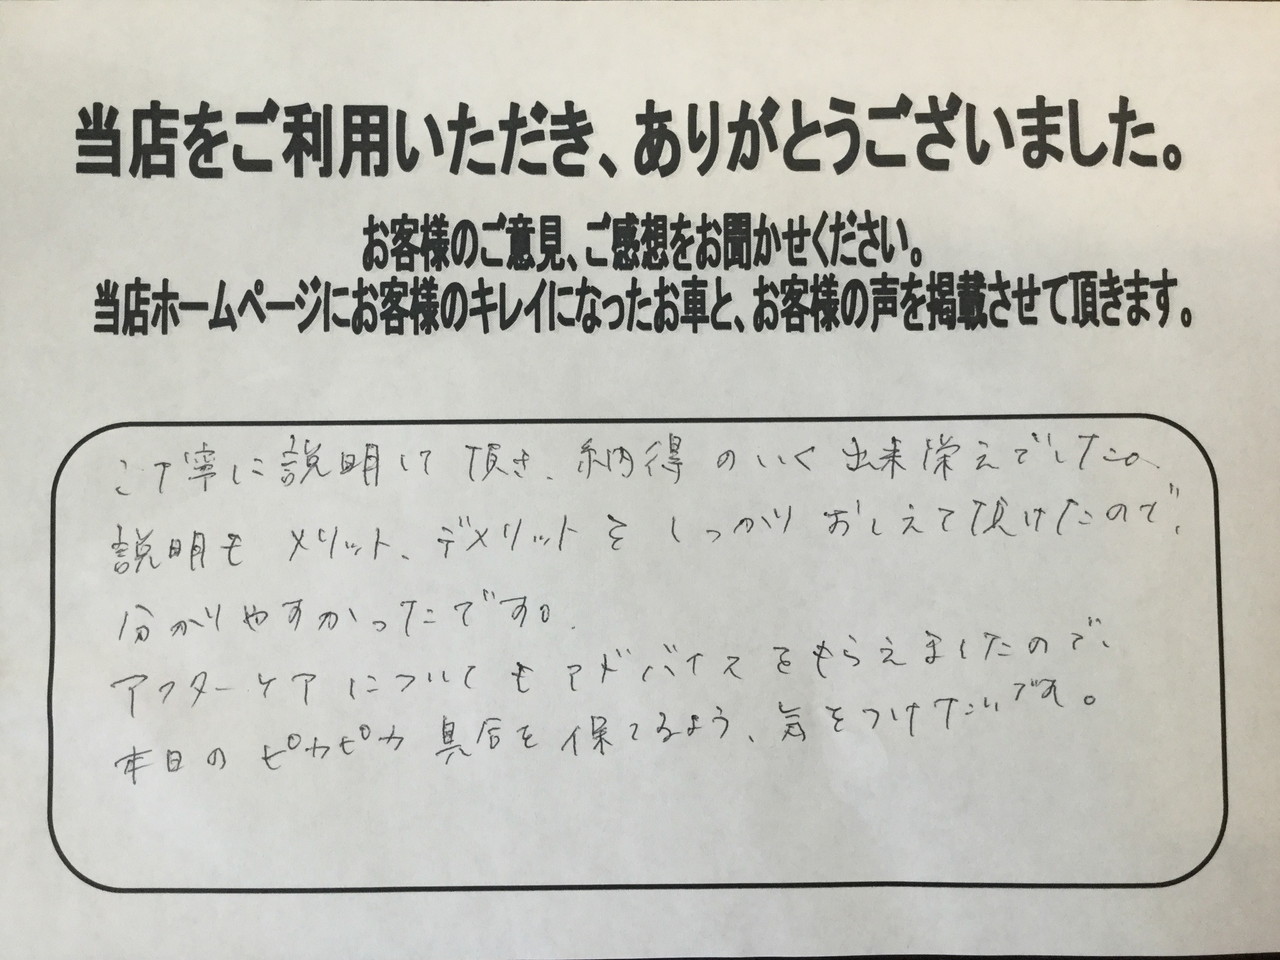 当店をご利用いただき、ありがとうございました。
お客様のご意見、ご感想をお聞かせください。
当店ホームページにお客様のキレイになったお車と、お客様の声を掲載させて頂きます。
ご丁寧に説明して頂き、納得のいく出来栄えでした。
説明もメリット、デメリットをしっかりおしえて頂けたので、
分かりやすかったです。
アフターケアについてもアドバイスをもらえましたので、
本日のピカピカ具合を保てるよう、気をつけたいです。